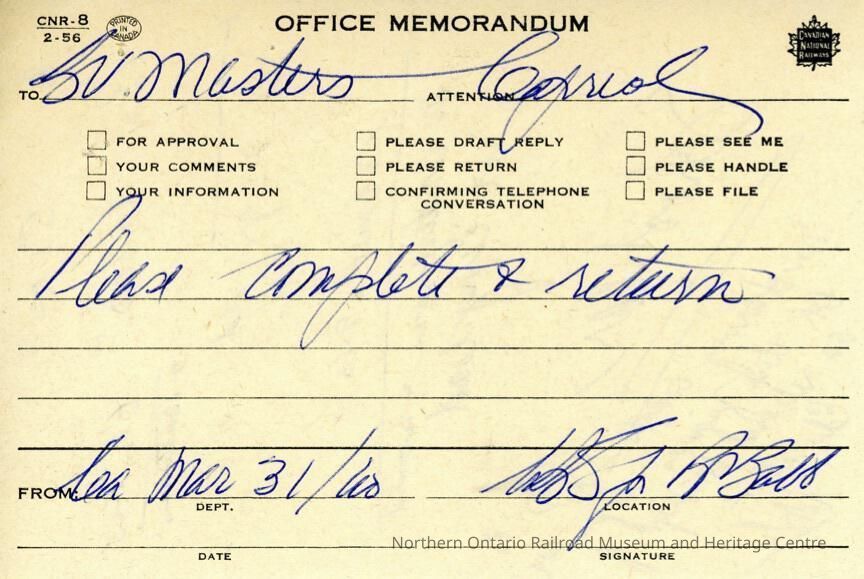 CNR-8
2-56
PRINTED IN CANADA
OFFICE MEMORANDUM
CANADIAN
NATIONAL
RAILWAYS
TO Masters ATTENTION Capreol
FOR APPROVAL PLEASE DRAFT REPLY PLEASE SEE ME
YOUR COMMENTS PLEASE RETURN PLEASE HANDLE
YOUR INFORMATION CONFIRMING TELEPHONE CONVERSATION PLEASE FILE
Please complete & return
FROM: Mar 31/60
DEPT. LOCATION
Northern Ontario Railroad Museum and Heritage Centre
DATE SIGNATURE